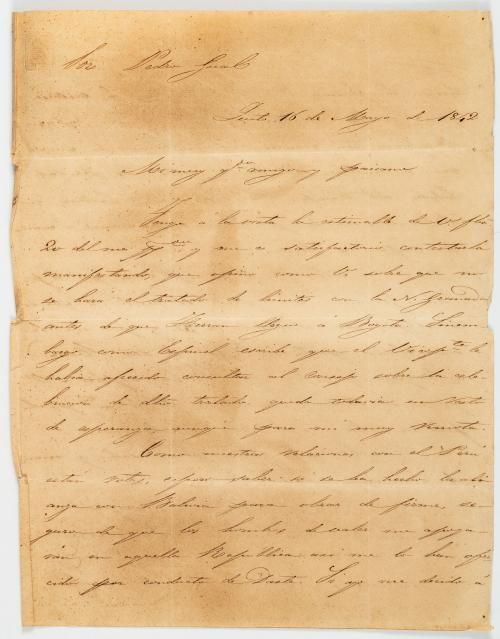 Sor Pedro Gual
Quito 16 de Mayo de 1842
Mi muy qdo amigo y paisano
Tengo á la vista la estimable de V. fha
20 del mes ppdo y me es satisfactorio contestarla
manifestando, que opino como V. sobre que no
se hará el tratado de limites con la N. Granada
antes de que Herran llegue á Bogotá. Sinem
bargo como Espinel escribe que el Vicepte le
habia ofrecido consultar al Consejo sobre la cele
bracion de dho tratado, queda todavia un resto
de esperanza, aunque para mi muy remota.
Como nuestras relaciones con el Perú
están rotas, espero saber si se ha hecho la ali
anza con Bolivia para obrar de firme, se
guro de que los hombres de valer me apoya
rán en aquella Republica: asi me lo han ofre
cido por conducto de Daste. Si yo me decido á